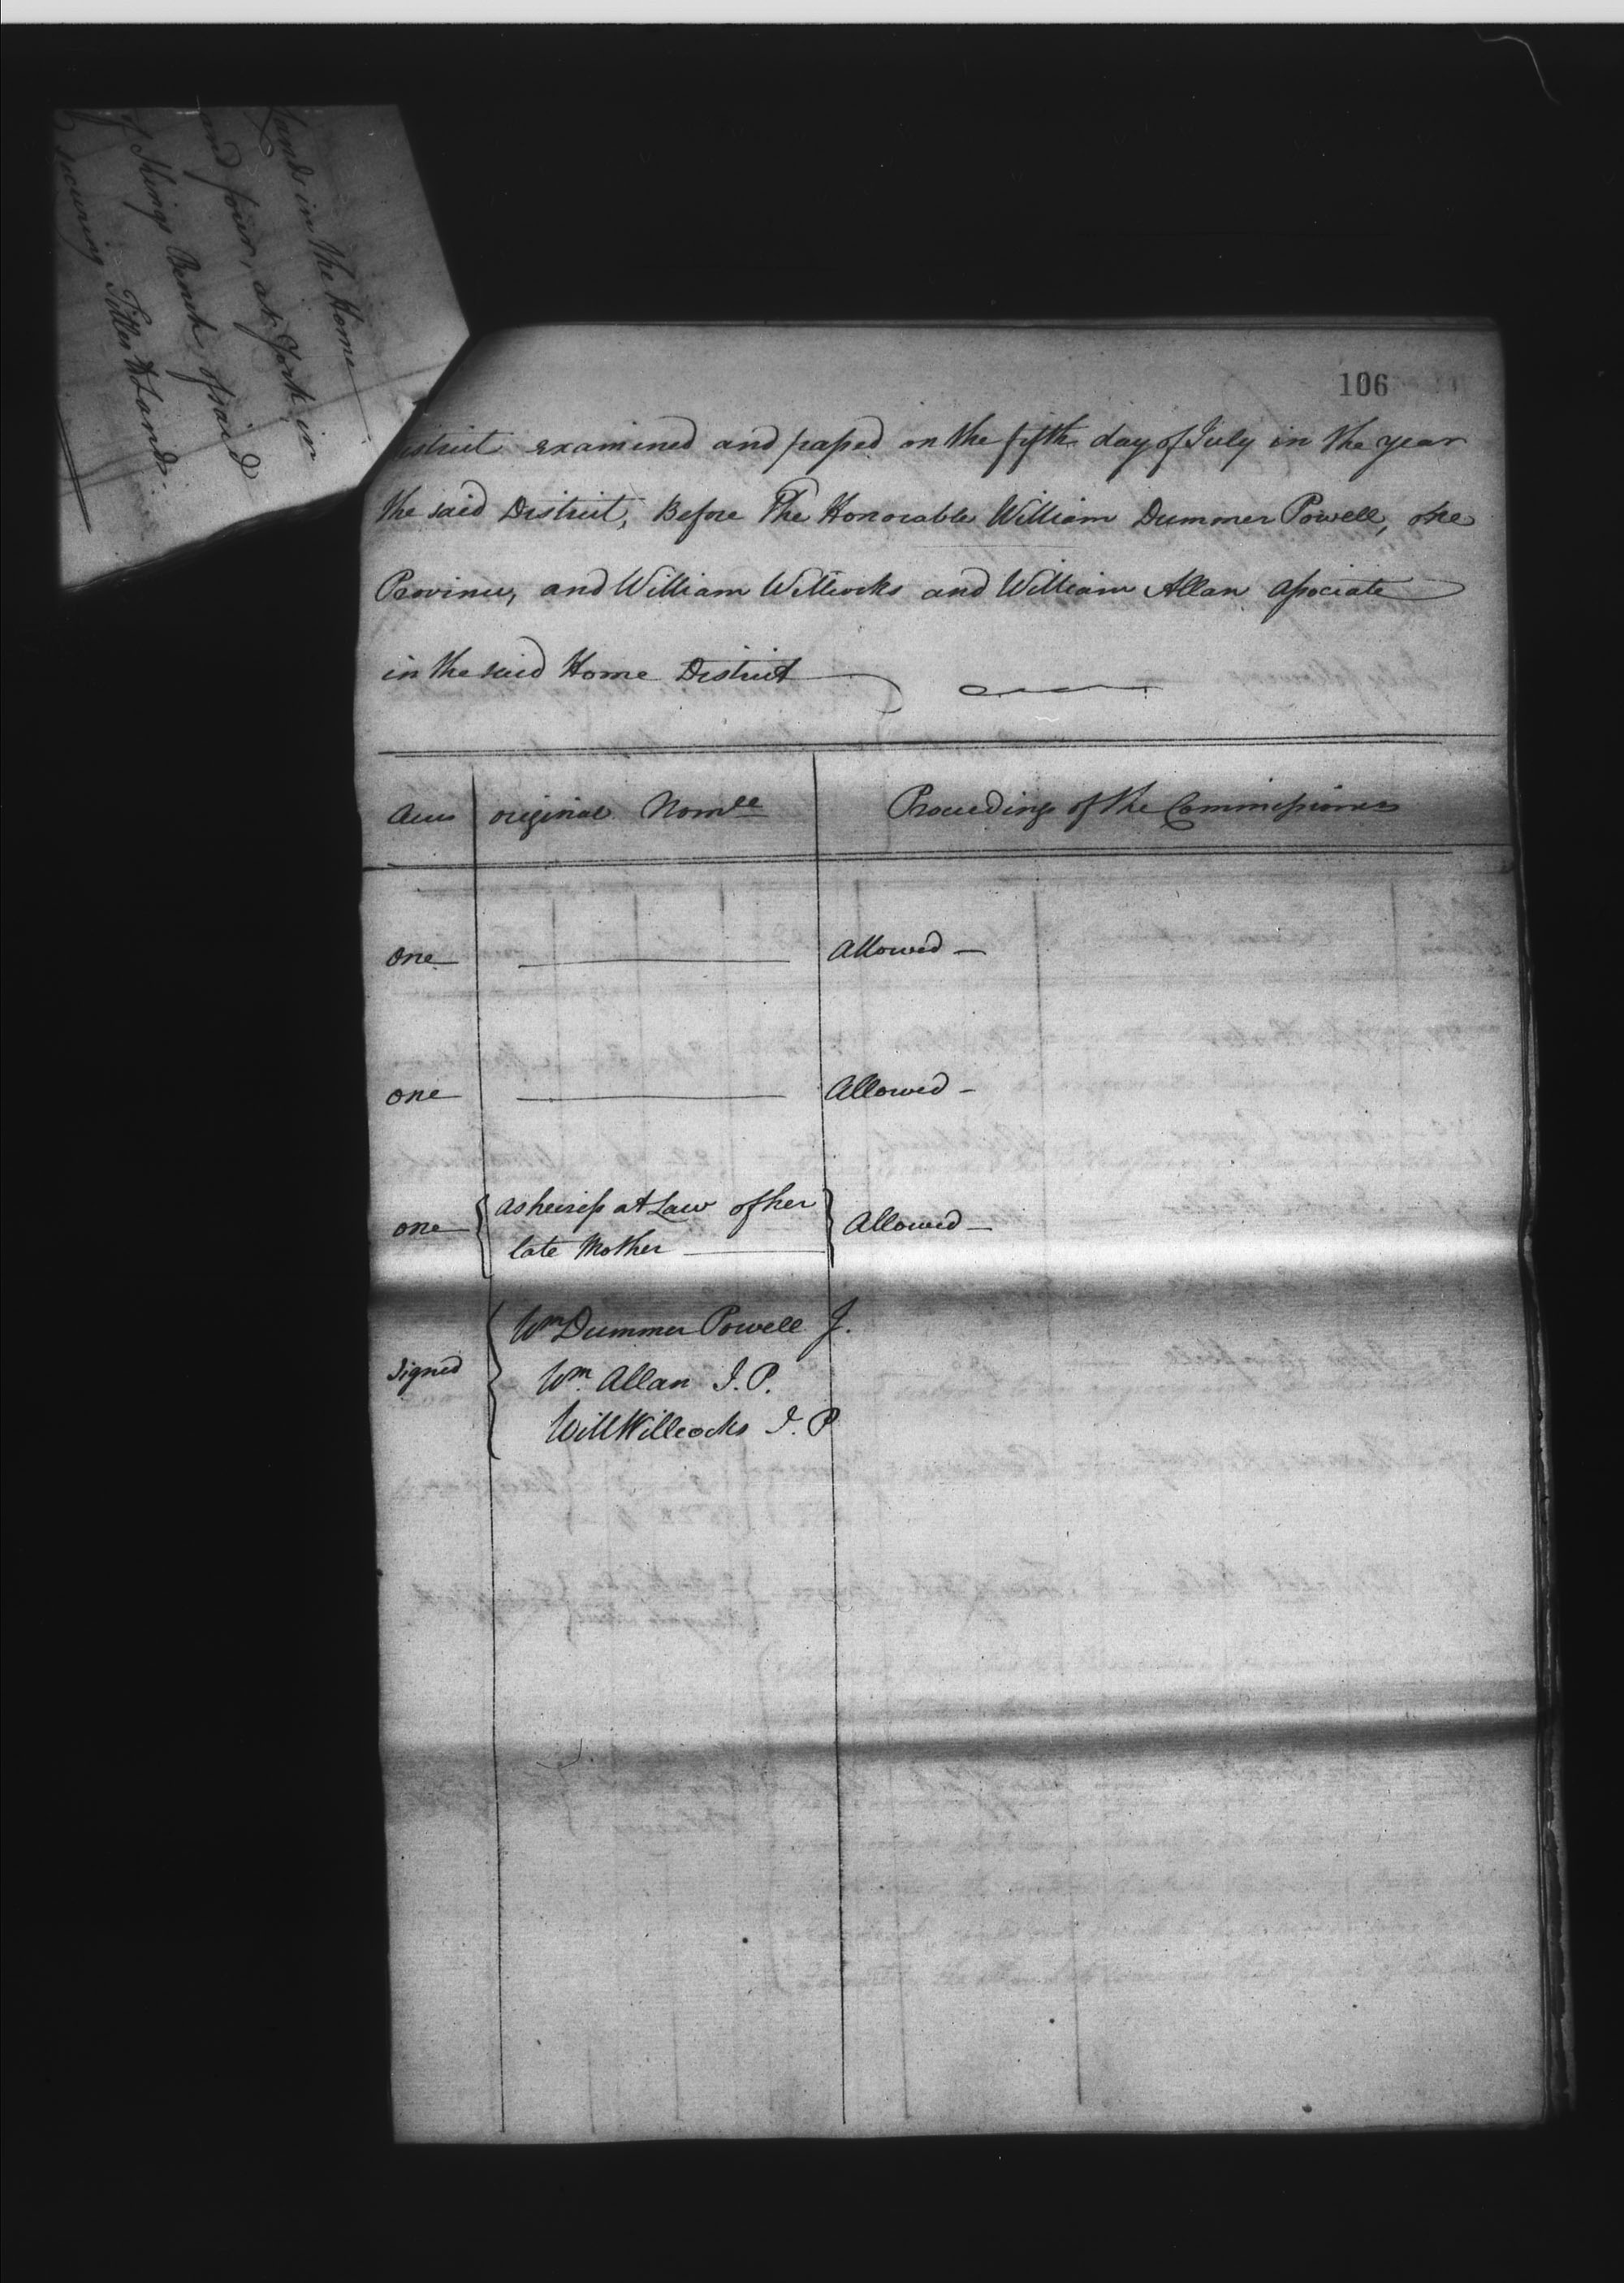 Lands in the Home
and four, at York in
of Kings Bench of said
securing Titles to Lands
106
District examined and paſsed on the fifth day of July in the year
the said District, Before The Honorable William Dummer Powell, one
Province, and William Willcocks and William Allan Aſsociate
in the said Home District
Acres original Nomee Proceedings of the Commiſsioners
one Allowed —
one Allowed —
one { as heireſs at Law of her } Allowed —
late Mother
Signed { Wm Dummer Powell J.
Wm. Allan J. P.
Will Willcocks J. P